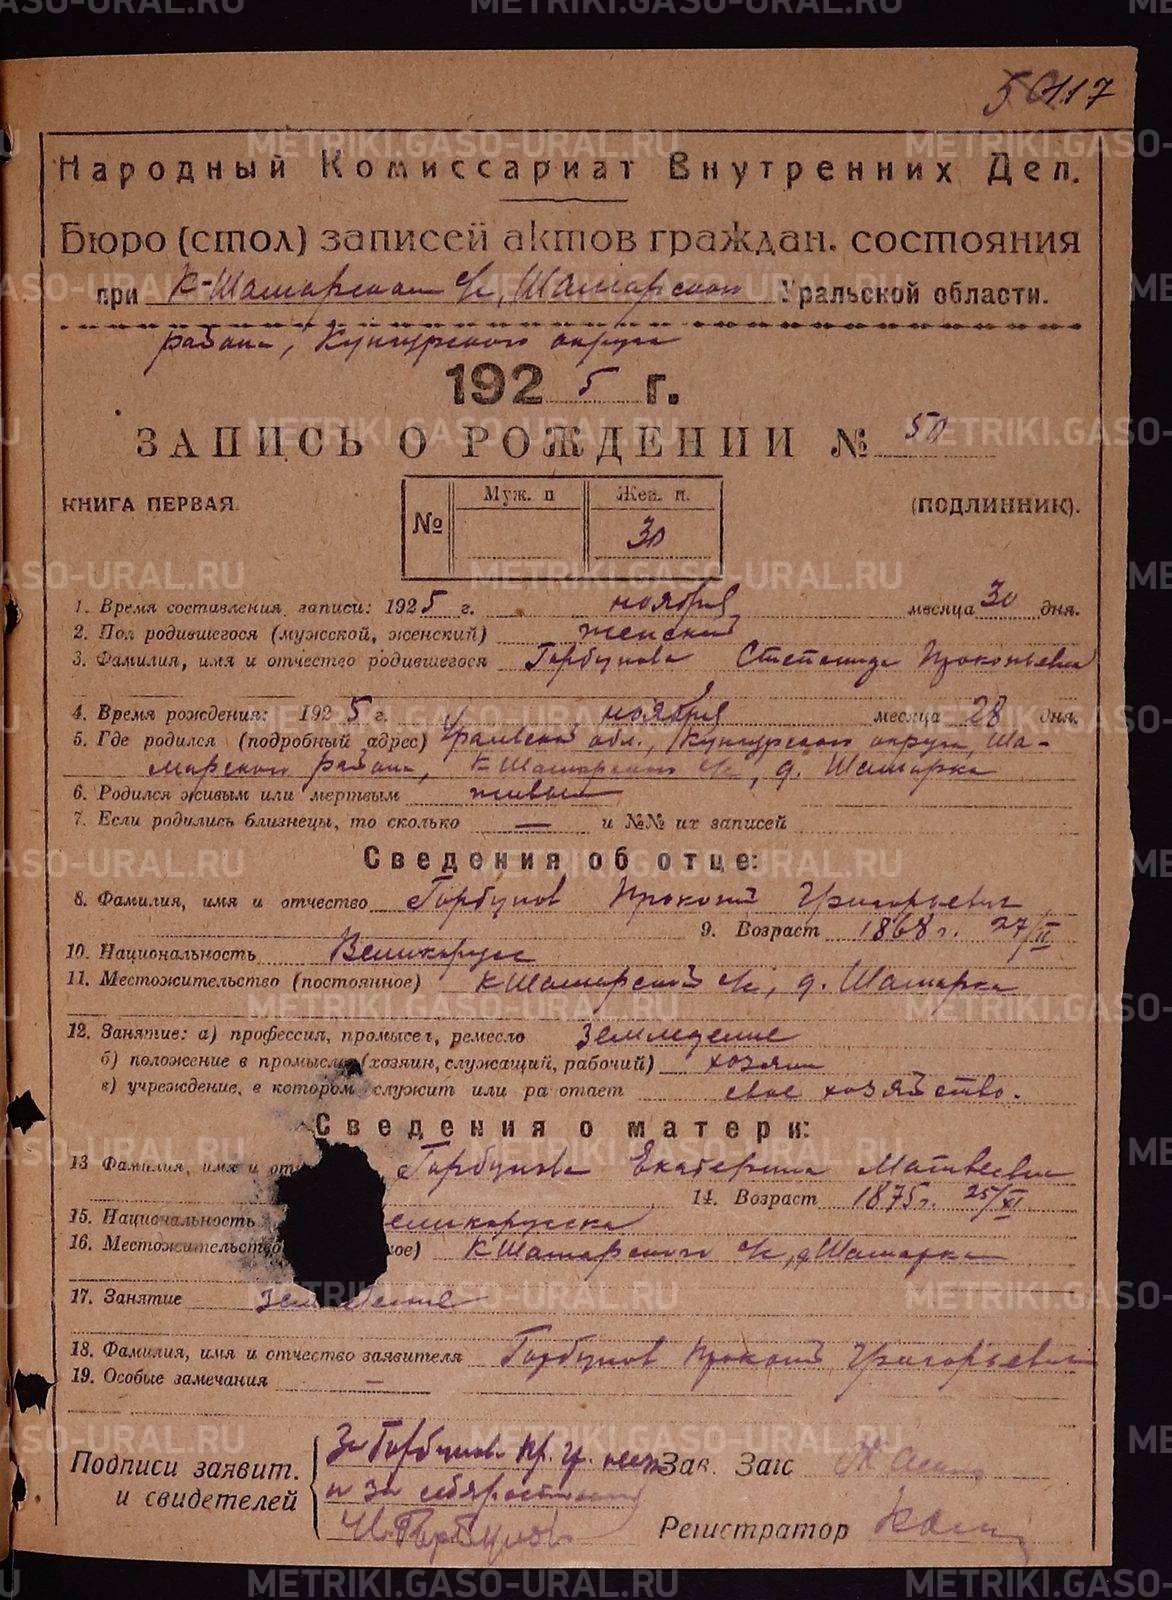 117
Народный Комиссариат Внутренних Дел.
Бюро (стол) записей актов граждан. состояния
при К-Шамарском с/с, Шамарского Уральской области.
района, Кунгурского округа
1925 г.
ЗАПИСЬ О РОЖДЕНИИ № 50
КНИГА ПЕРВАЯ. (ПОДЛИННИК).
№ Муж. п Жен. п.
30
1. Время составления записи: 1925 г. ноября месяца 30 дня.
2. Пол родившегося (мужской, женский) женский
3. Фамилия, имя и отчество родившегося Горбунова Степанида Прокопьевна
4. Время рождения: 1925 г. ноября месяца 28 дня.
5. Где родился (подробный адрес) Уральской обл., Кунгурского округа, Ша-
марского района, К Шамарского с/с, д. Шамарка
6. Родился живым или мертвым живым
7. Если родились близнецы, то сколько — и №№ их записей
Сведения об отце:
8. Фамилия, имя и отчество Горбунов Прокопий Григорьевич
9. Возраст 1868 г. 27/II
10. Национальность Великорусс
11. Местожительство (постоянное) К Шамарской с/с, д. Шамарка
12. Занятие: а) профессия, промысел, ремесло земледелие
б) положение в промысле (хозяин, служащий, рабочий) хозяин
в) учреждение, в котором служит или ра отает свое хозяйство.
Сведения о матери:
13 Фамилия, имя и от Горбунова Екатерина Матвеевна
14. Возраст 1875 г. 25/XI
15. Национальность еликорусска
16. Местожительство ое) К Шамарского с/с, д Шамарка
17. Занятие земледелие
18. Фамилия, имя и отчество заявителя Горбунов Прокопий Григорьевич
19. Особые замечания —
Подписи заявит.
и свидетелей
За Горбунова Пр. Гр.
и за себя
Горбунов
Зав. Загс
Регистратор
METRIKI.GASO-URAL.RU